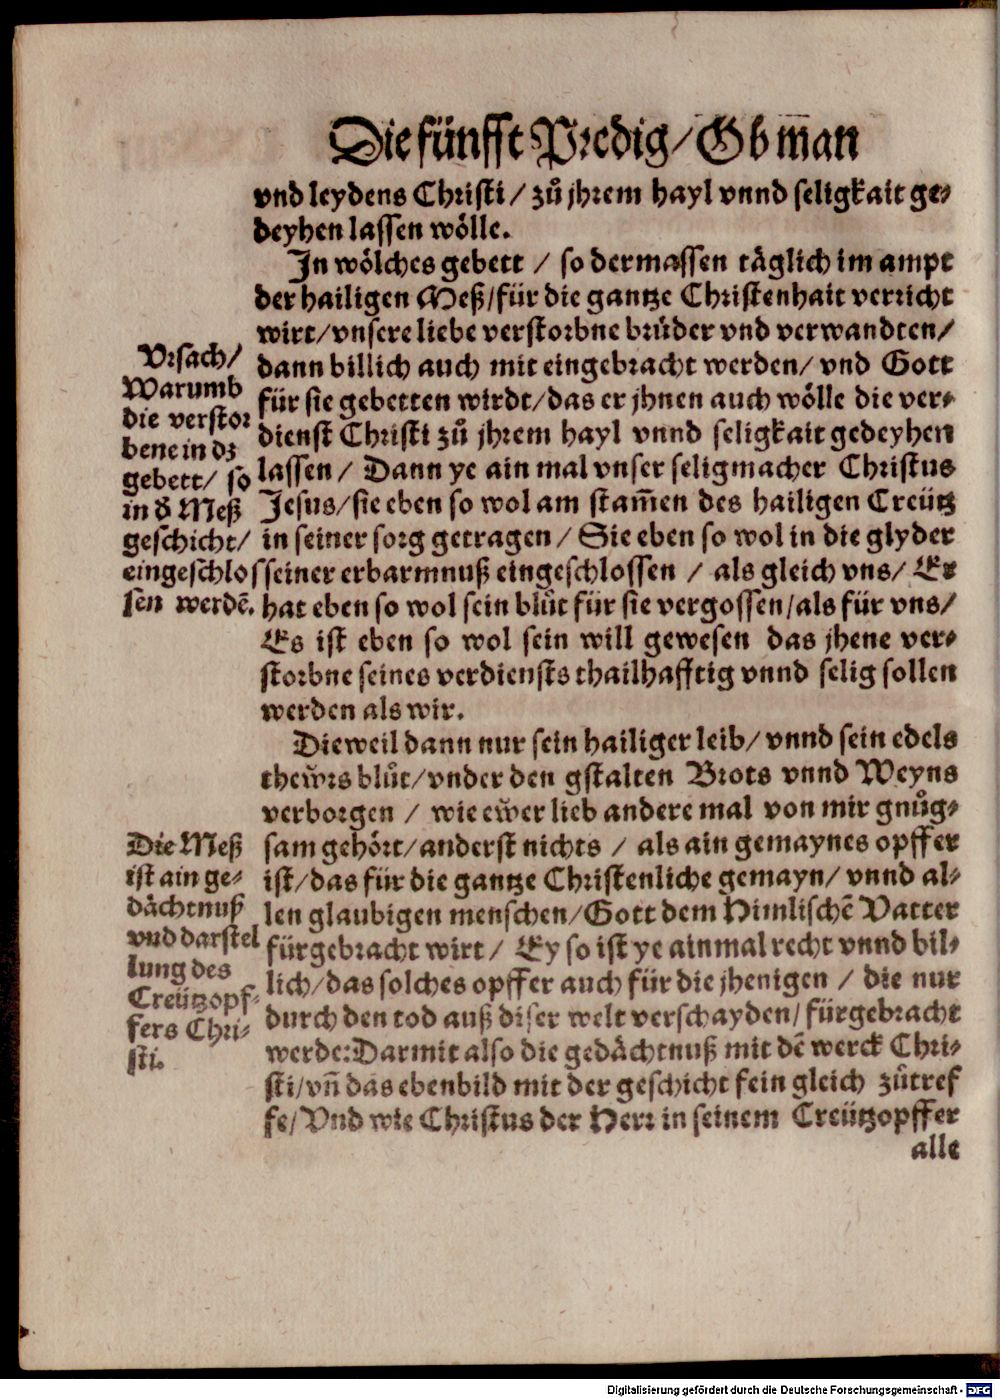 Die fünfft Predig/Ob m̄an
vnd leydens Christi / zů jhrem hayl vnnd seligkait ge-
deyhen lassen wölle.
In wölches gebett / so dermassen täglich im ampt
der hailigen Meß/für die gantze Christenhait verricht
wirt/vnsere liebe verstorbne brůder vnd verwandten/
dann billich auch mit eingebracht werden/ vnd Gott
für sie gebetten wirdt/das er jhnen auch wölle die ver-
dienst Christi zů jhrem hayl vnnd seligkait gedeyhen
lassen / Dann ye ain mal vnser seligmacher Christus
Jesus/sie eben so wol am stam̄en des hailigen Creütz
in seiner sorg getragen / Sie eben so wol in die glyder
seiner erbarmnuß eingeschlossen / als gleich vns/ Er
hat eben so wol sein blůt für sie vergossen/als für vns/
Es ist eben so wol sein will gewesen das jhene ver-
storbne seines verdiensts thailhafftig vnnd selig sollen
werden als wir.
Vrsach/
Warumb
die verstor
bene in dz
gebett/ so
in d̄ Meß
geschicht/
eingeschlos
sen werdē.
Dieweil dann nur sein hailiger leib/ vnnd sein edels
thew̆rs blůt/vnder den gstalten Brots vnnd Weyns
verborgen / wie ew̆er lieb andere mal von mir gnůg-
sam gehört/anderst nichts / als ain gemaynes opffer
ist/das für die gantze Christenliche gemayn/ vnnd al-
len glaubigen menschen/Gott dem Himlischē Vatter
fürgebracht wirt / Ey so ist ye ainmal recht vnnd bil-
lich/das solches opffer auch für die jhenigen / die nur
durch den tod auß diser welt verschayden/fürgebracht
werde:Darmit also die gedächtnuß mit dē werck Chri-
sti/vn̄ das ebenbild mit der geschicht fein gleich zůtref
fe/Vnd wie Christus der Herr in seinem Creützopffer
Die Meß
ist ain ge-
dächtnuß
vnd darstel
lung des
Creützopf-
fers Chri-
sti.
alle
Digitalisierung gefördert durch die Deutsche Forschungsgemeinschaft - DFG